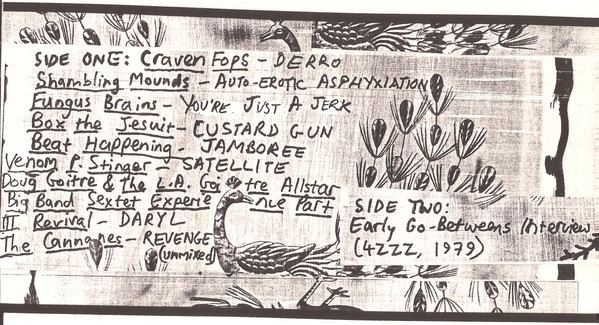 SIDE ONE: Craven Fops - DERRO
Shambling Mounds - AUTO-EROTIC ASPHYXIATION
Fungus Brains - YOU'RE JUST A JERK
Box the Jesuit - CUSTARD GUN
Beat Happening - JAMBOREE
Venom P. Stinger - SATELLITE
Doug Goitre & the L.A. Goitre Allstar
Big Band Sextet Experience Part
III Revival - DARYL
The Cannanes - REVENGE
(unmixed)
SIDE TWO:
Early Go-Betweens Interview
(4ZZZ, 1979)